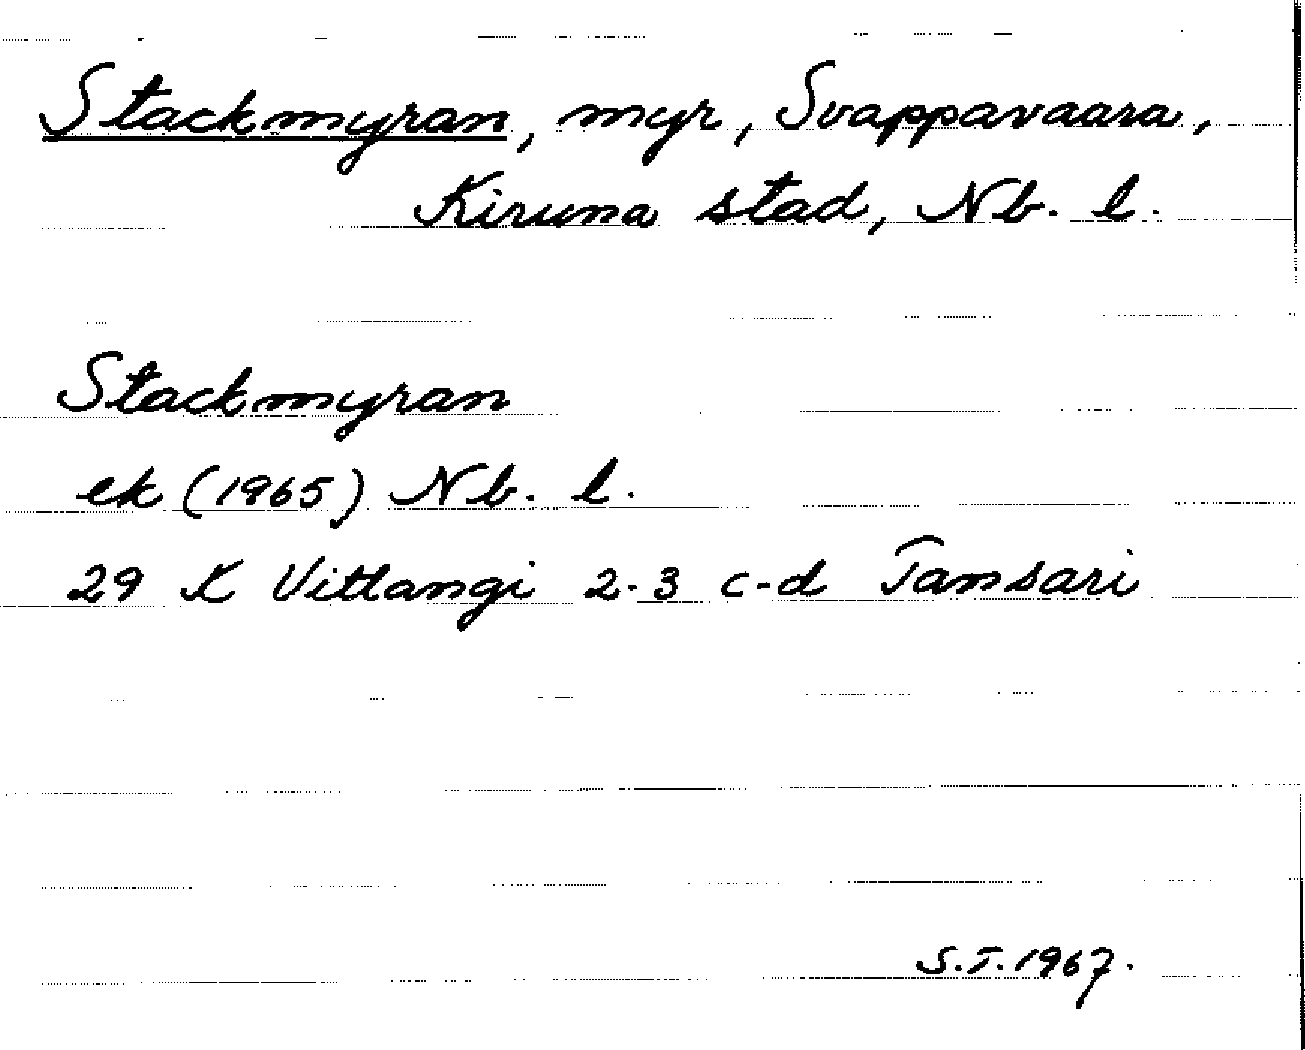 Stackmyran, myr, Svappavaara,
Kiruna stad, Nb. l.
Stackmyran
ek (1965) Nb. l.
29 K Vittangi 2-3 c-d Tansari
S.T. 1967.